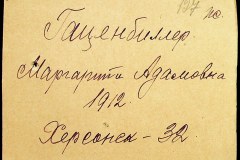 197 по.
Гаценбиллер.
Маргарита Адамовна
1912.
Херсонск - 32